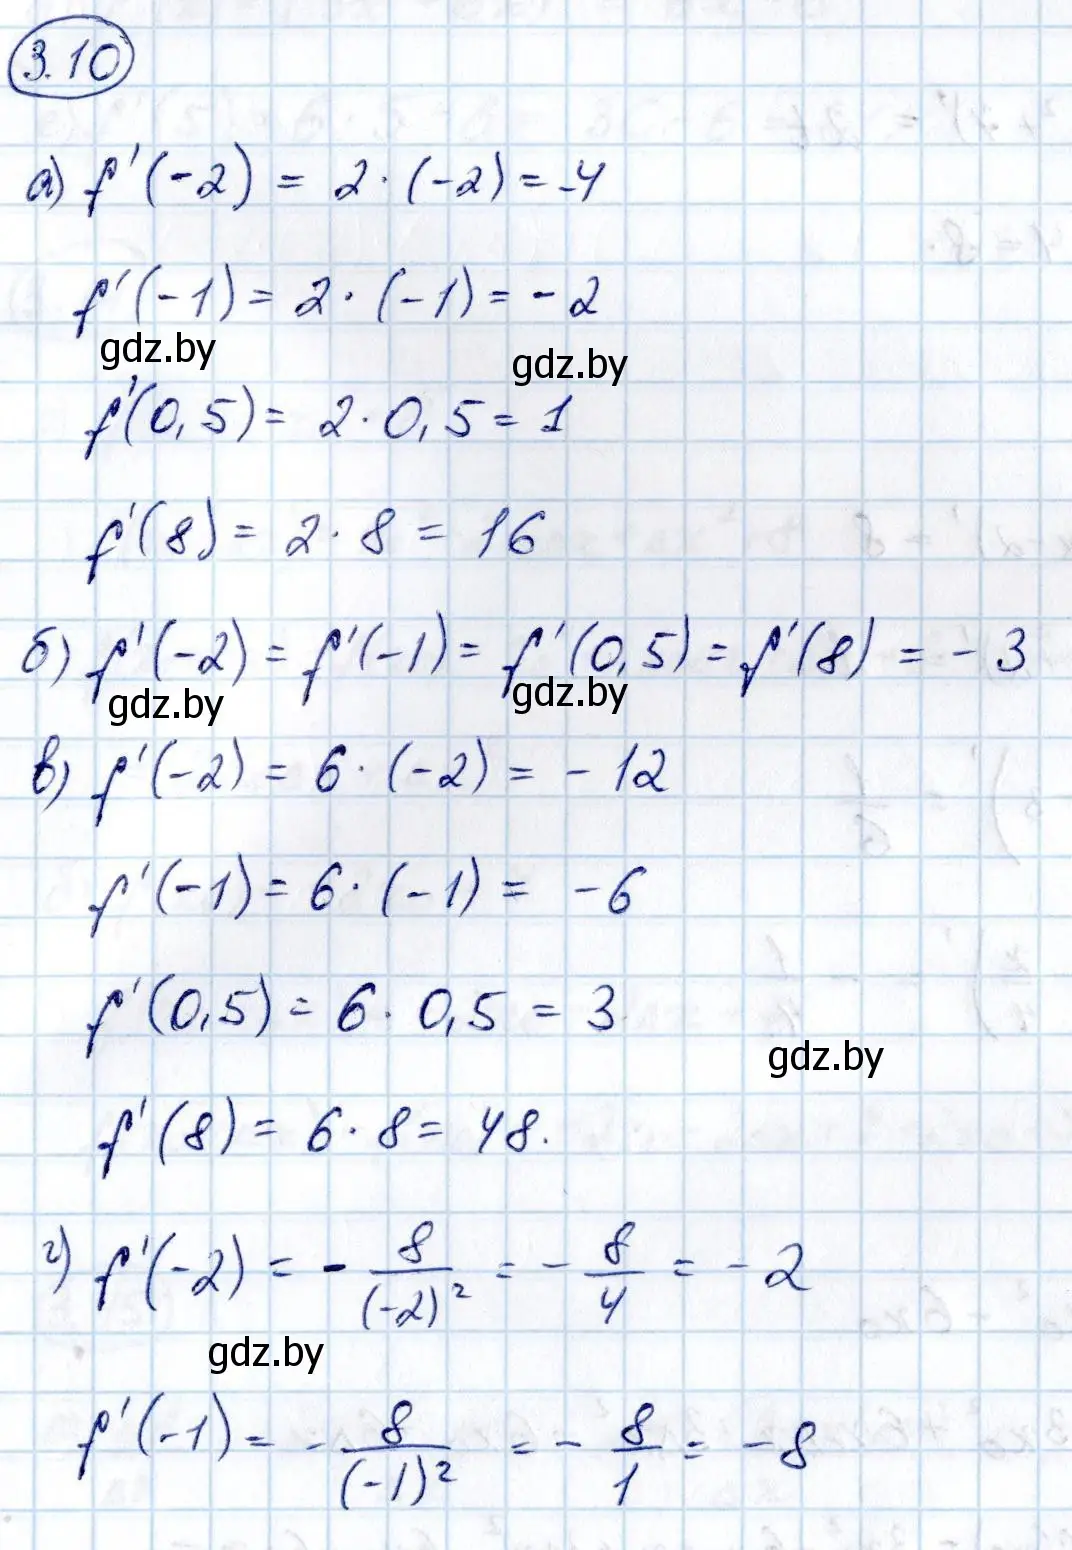 3.10
а) f'(-2) = 2·(-2) = -4
f'(-1) = 2·(-1) = -2
gdz.by
gdz.by
f'(0,5) = 2·0,5 = 1
f'(8) = 2·8 = 16
б) f'(-2) = f'(-1) = f'(0,5) = f'(8) = -3
gdz.by
gdz.by
в) f'(-2) = 6·(-2) = -12
f'(-1) = 6·(-1) = -6
f'(0,5) = 6·0,5 = 3
gdz.by
f'(8) = 6·8 = 48.
г) f'(-2) = - 8/(-2)² = - 8/4 = -2
gdz.by
f'(-1) = - 8/(-1)² = - 8/1 = -8